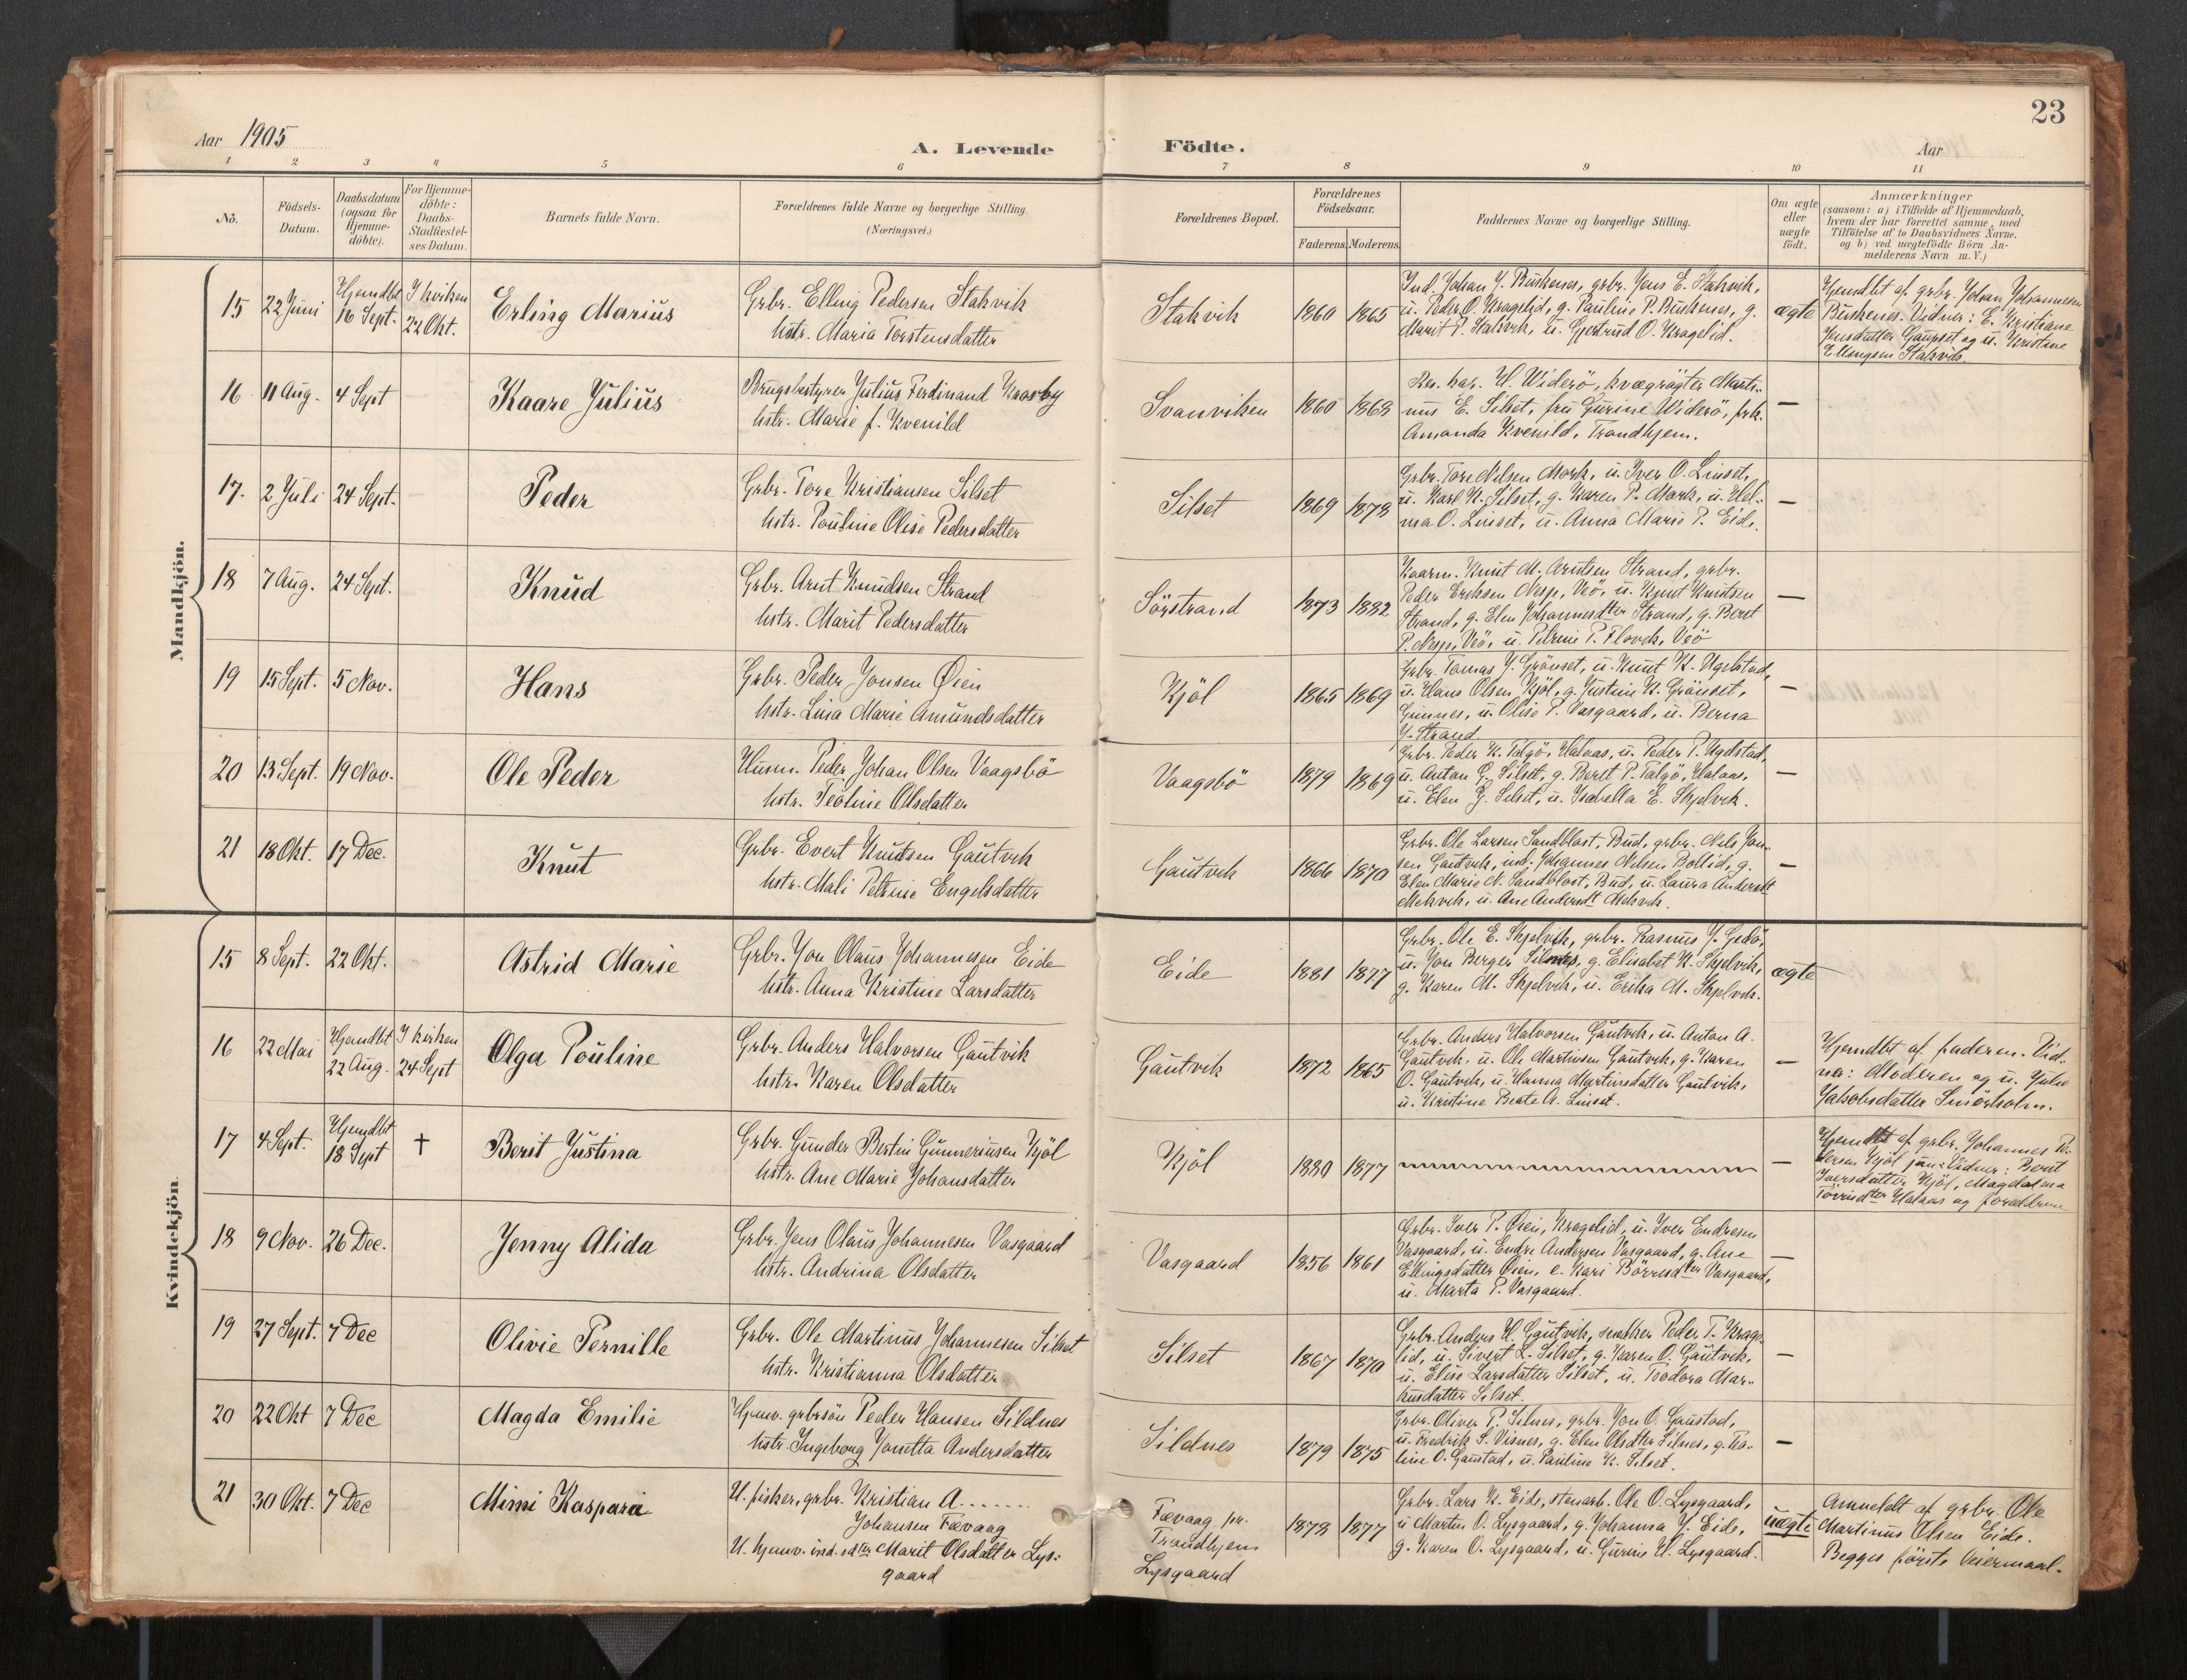 23
Aar 1905
A. Levende
Födte.
Aar
1 2 3 4 5 6 7 8 9 10 11
Nò.
Födsels-
Datum.
Daabsdatum
(ogsaa for
Hjemme-
döbte).
For Hjemme-
döbte:
Daabs-
Stadfæstel-
ses Datum.
Barnets fulde Navn.
Forældrenes fulde Navne og borgerlige Stilling.
(Næringsvei.)
Forældrenes Bopæl.
Forældrenes
Födselsaar.
Faderens. Moderens.
Faddernes Navne og borgerlige Stilling.
Om ægte
eller
uægte
födt.
Anmærkninger
(saasom: a) i Tilfælde af Hjemmedaab,
hvem der har forrettet samme, med
Tilföielse af to Daabsvidners Navne.
og b) ved uægtefödte Börn An-
melderens Navn m. V.)
Mandkjön.
15
22 Juni
Hjemdbt
16 Sept.
I kirken
22 Okt.
Erling Marius
Grbr. Elling Pedersen Stakvik
hstr. Maria Torstensdatter
Stakvik
1860 1865
Ind. Johan J. Buskenes, grbr. Jens E. Stakvik,
u. Peder O. Kragelid, g. Pauline P. Buskenes, g.
Marit P. Stakvik, u. Gjertrud O. Kragelid.
ægte
Hjemdbt af grbr. Johan Johannesen
Buskenes. Vidner: E. Kristiane
Jensdatter Gaupset og u. Kristine
Ellingsen Stakvik.
16
11 Aug.
4 Sept
Kaare Julius
Brugsbestyrer Julius Ferdinand Kraaby
hstr. Marie f. Kvenild
Svanviken
1860 1868
Res. kap. H. Widerö, kvægrögter Marti-
nus E. Silset, fru Gurine Widerö, frk.
Amanda Kvenild, Trondhjem.
—
17.
2 Juli
24 Sept.
Peder
Grbr. Tore Kristiansen Silset
hstr. Pouline Olise Pedersdatter
Silset
1869 1878
Grbr. Tore Nilsen Mork, u. Iver O. Linset,
u. Karl K. Silset, g. Karen P. Mork, u. Hel-
ma O. Linset, u. Anna Marie P. Eide.
—
18
7 Aug.
24 Sept.
Knud
Grbr. Arnt Knudsen Strand
hstr. Marit Pedersdatter
Sörstrand
1873 1882
Kaarm. Knut M. Arntsen Strand, grbr.
Peder Eriksen Nesje, Veö, u. Knut Knutsen
Strand, g. Elen Johannesdtter Strand, g. Beret
P. Nesje, Veö, u. Petrine P. Flovik, Veö
—
19
15 Sept.
5 Nov.
Hans
Grbr. Peder Jonsen Øien
hstr. Lina Marie Amundsdatter
Kjöl
1865 1869
Grbr. Tomas J. Grönset, u. Knut K. Ugelstad,
u. Hans Olsen Kjöl, g. Justine K. Grönset,
Gimnes, u. Olise P. Vasgaard, u. Berna
J. Strand
—
20
13 Sept.
19 Nov.
Ole Peder
Husm. Peder Johan Olsen Vaagsbö
hstr. Teoline Olsdatter
Vaagsbö
1879 1869
Grbr. Peder K. Talgö, Halaas, u. Peder P. Ugelstad,
u. Anton G. Silset, g. Beret P. Talgö, Halaas,
u. Elen J. Silset, u. Isabella E. Skjelvik.
—
21
18 Okt.
17 Dec.
Knut
Grbr. Evert Knutsen Gautvik
hstr. Mali Petrine Engelsdatter
Gautvik
1866 1870
Grbr. Ole Larsen Sandblost, Bud, grbr. Nils Jon-
sen Gautvik, ind. Johannes Nilsen Bollid, g.
Elen Marie N. Sandblost, Bud, u. Laura Andersdt
Mekvik, u. Ane Andersdt Mekvik.
—
Kvindekjön
15
8 Sept.
22 Okt.
Astrid Marie
Grbr. Jon Olaus Johannesen Eide
hstr. Anna Kristine Larsdatter
Eide
1881 1877
Grbr. Ole E. Skjelvik, grbr. Rasmus J. Gedö,
u. Jon Berger Silnes, g. Elisabet K. Skjelvik,
g. Karen M. Skjelvik, u. Erika M. Skjelvik.
ægte
16
22 Mai
Hjemdbt
22 Aug.
I kirken
24 Sept
Olga Pouline
Grbr. Anders Halvorsen Gautvik
hstr. Karen Olsdatter
Gautvik
1872 1865
Grbr. Anders Halvorsen Gautvik, u. Anton A.
Gautvik, u. Ole Martinsen Gautvik, g. Karen
O. Gautvik, u. Hanna Martinsdatter Gautvik,
u. Kristine Beate A. Linset.
—
Hjemdbt af faderen. Vid-
ner: Moderen og u. Julie
Jakobsdatter Smörholm.
17
4 Sept.
Hjemdbt
18 Sept
†
Berit Justina
Grbr. Gunder Bertin Gunneriusen Kjöl
hstr. Ane Marie Johansdatter
Kjöl
1880 1877
—
Hjemdbt af grbr. Johannes P-
dersen Kjöl jun. Vidner: Berit
Iversdatter Kjöl, Magdalena
Torrisdter Halaas og forældrene
18
9 Nov.
26 Dec.
Jenny Alida
Grbr. Jens Olaus Johannesen Vasgaard
hstr. Andrina Olsdatter
Vasgaard
1856 1861
Grbr. Iver P. Øien, Kragelid, u. Iver Endresen
Vasgaard, u. Endre Andersen Vasgaard, g. Ane
Ellingsdatter Øien, e. Kari Börresdter Vasgaard,
u. Marta P. Vasgaard.
—
19
27 Sept.
7 Dec
Olivie Pernille
Grbr. Ole Martinus Johannesen Silset
hstr. Kristianna Olsdatter
Silset
1867 1870
Grbr. Anders H. Gautvik, snekker Peder T. Krage-
lid, u. Sivert L. Silset, g. Karen O. Gautvik,
u. Elise Larsdatter Silset, u. Teodora Mar-
kusdatter Silset.
—
20
22 Okt
7 Dec
Magda Emilie
Hjemv. grbrsön Peder Hansen Sildnes
hstr. Ingeborg Jonetta Andersdatter
Sildnes
1879 1875
Grbr. Oliver P. Silnes, grbr. Jon O. Gaustad,
u. Fredrik S. Visnes, g. Elen Olsdtter Silnes, g. Teo-
line O. Gaustad, u. Pauline K. Silset.
—
21
30 Okt.
7 Dec
Mimi Kaspara
U. fisker, grbr. Kristian A.......
Johansen Fævaag
U. hjemv. ind. sdter Marit Olsdatter Lys-
gaard
Fævaag pr.
Trondhjem
Lysgaard
1878 1877
Grbr. Lars K. Eide, stenarb. Ole O. Lysgaard,
u Martin O. Lysgaard, g. Johanna J. Eide,
g. Karen O. Lysgaard, u. Gurine H. Lysgaard.
uægte
Anmeldt af grbr. Ole
Martinus Olsen Eide.
Begges förste leiermaal.